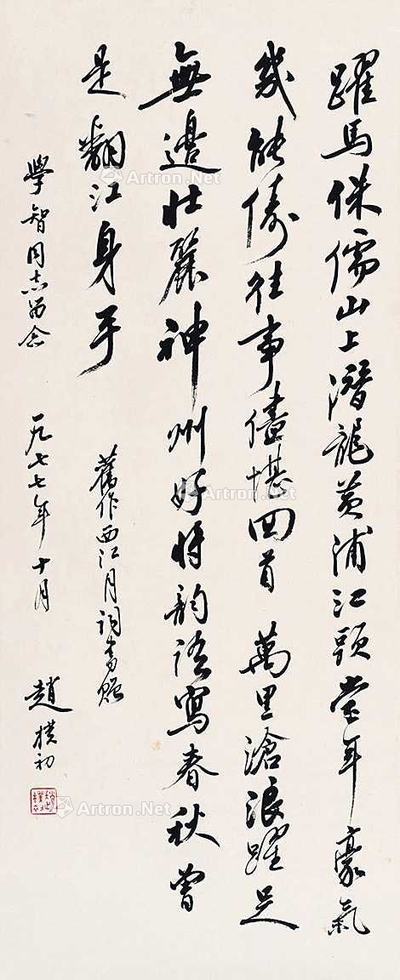 躍馬侏儒山上潛龍黃浦江頭當年豪氣
幾能儔往事儘堪回首 萬里滄浪躍足
無邊壯麗神州好將韵語寫春秋曾
是翻江身手
舊作西江月詞書贈
學智同志留念
一九七七年十月
趙樸初
Artron.Net
Artron.Net
Artron.Net
Artron.Net
Artron.Net
Artron.Net